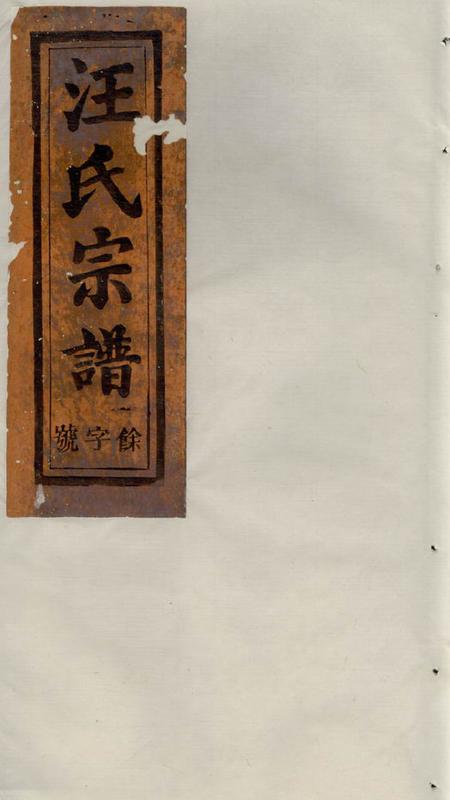 汪氏宗譜
餘字號